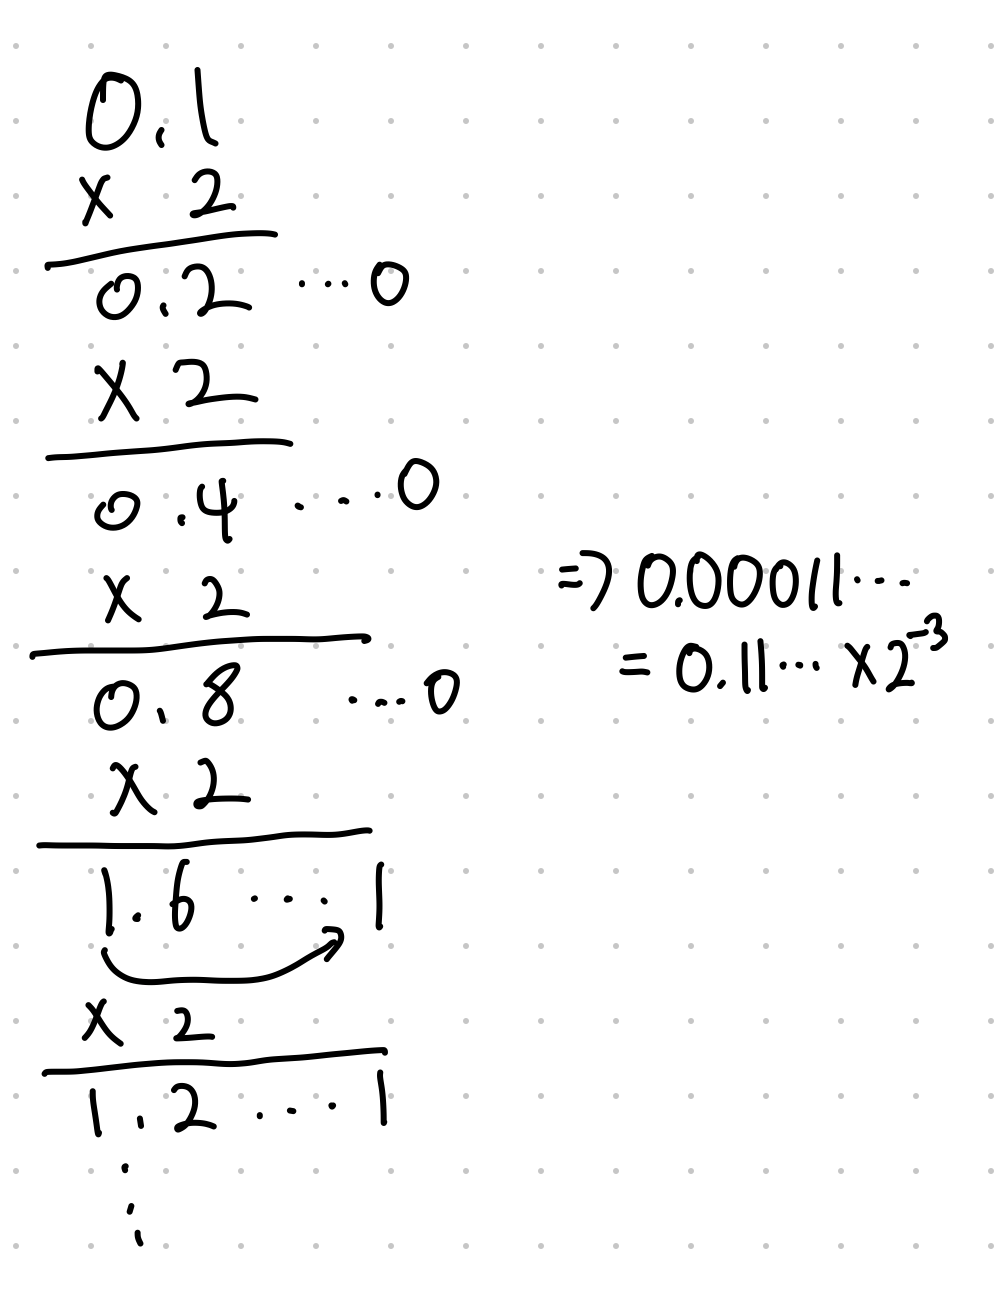 0.1
× 2
0.2 ... 0
× 2
0.4 ... 0
× 2
0.8 ... 0
× 2
1.6 ... 1
× 2
1.2 ... 1
⋮
=> 0.00011...
= 0.11... ×2⁻³